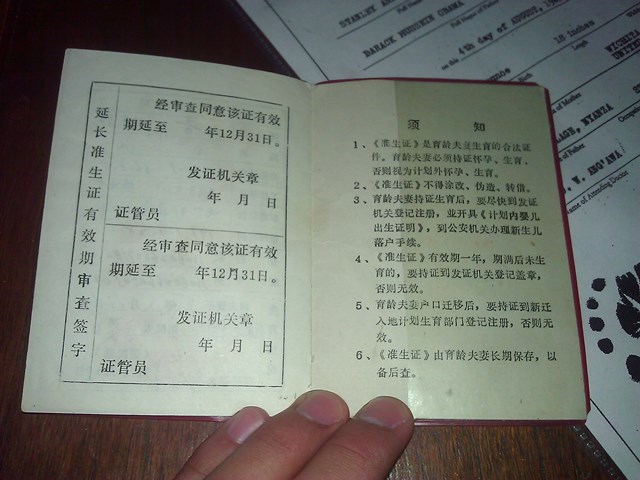 延长准生证有效期审查签字
经审查同意该证有效
期延至 年12月31日。
发证机关章
年 月 日
证管员
经审查同意该证有效
期延至 年12月31日。
发证机关章
年 月 日
证管员
须 知
1、《准生证》是育龄夫妻生育的合法证
件。育龄夫妻必须持证怀孕、生育。
否则视为计划外怀孕、生育。
2、《准生证》不得涂改、伪造、转借。
3、育龄夫妻持证生育后，要尽快到发证
机关登记注册，並开具《计划内婴儿
出生证明》，到公安机关办理新生儿
落户手续。
4、《准生证》有效期一年，期满后未生
育的，要持证到发证机关登记盖章，
否则无效。
5、育龄夫妻户口迁移后，要持证到新迁
入地计划生育部门登记注册，否则无
效。
6、《准生证》由育龄夫妻长期保存，以
备后查。
STANLEY
Full Name
BARACK HUSSEIN OBAMA
Full Name of Father
on this 4th day of AUGUST,
18 inches
Length
WICHITA
of Mother
NYANZA
of Father
Name of Attending